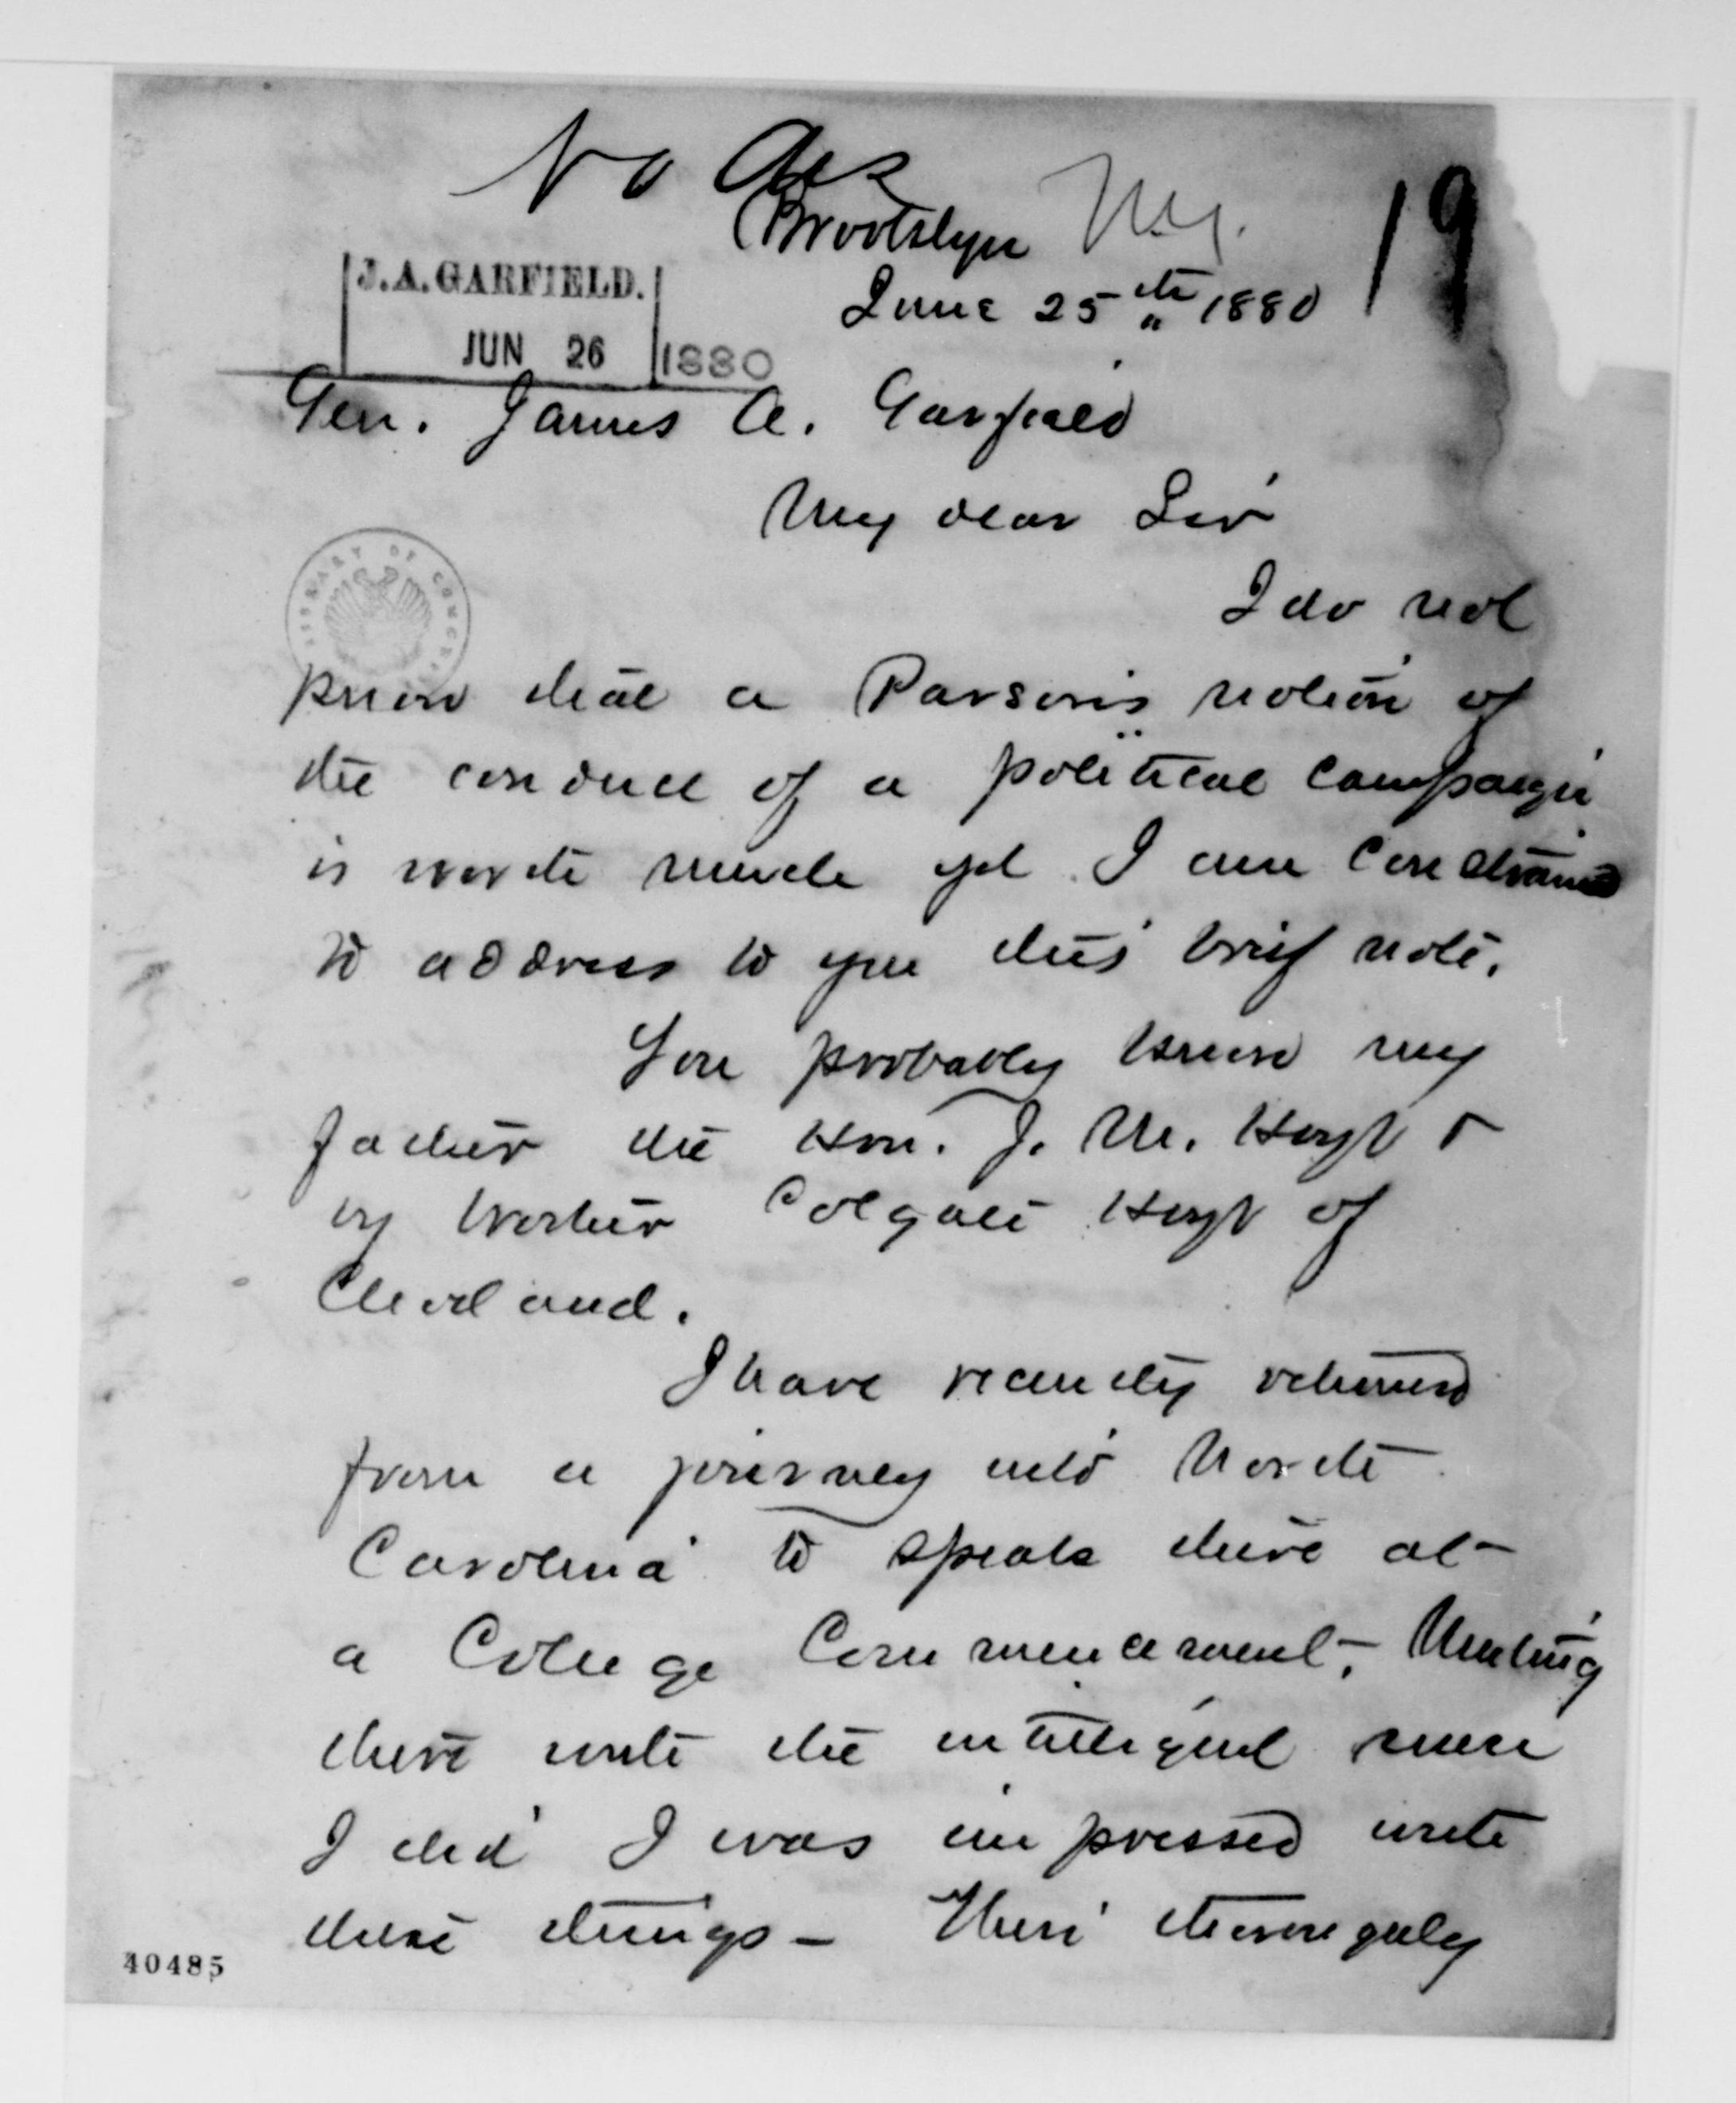 No Ans
Brooklyn N.Y.
19
June 25th 1880
J.A. GARFIELD.
JUN 26 1880
Gen. James A. Garfield
My dear Sir
LIBRARY OF CONGRESS
I do not
know that a Parson's notion of
the conduct of a political campaign
is worth much yet I am constrained
to address to you this brief note.
You probably know my
father the Hon. J. M. Hoyt &
my brother Colgate Hoyt of
Cleveland.
I have recently returned
from a journey into North
Carolina to speak there at
a College Commencement. Meeting
there with the intelligent men
I did I was impressed with
these things - Their thoroughly
40485